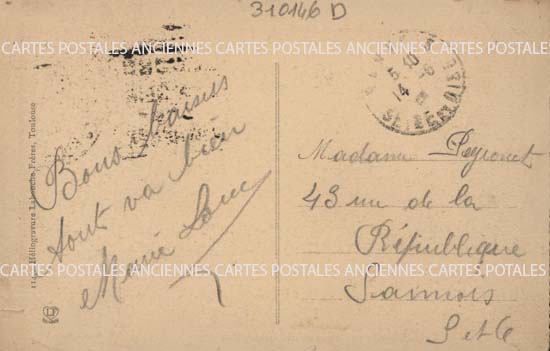 310146 D
CARTES POSTALES ANCIENNES CARTES POSTALES ANCIENNES CARTES POSTALES ANCIENNES
Bons baisers
tout va bien
Marie
Héliogravure Labouche Frères, Toulouse
15 10
14 -8
Madame Peyronet
43 rue de la
République
Sannois
S et O
CARTES POSTALES ANCIENNES CARTES POSTALES ANCIENNES CARTES POSTALES ANCIENNES